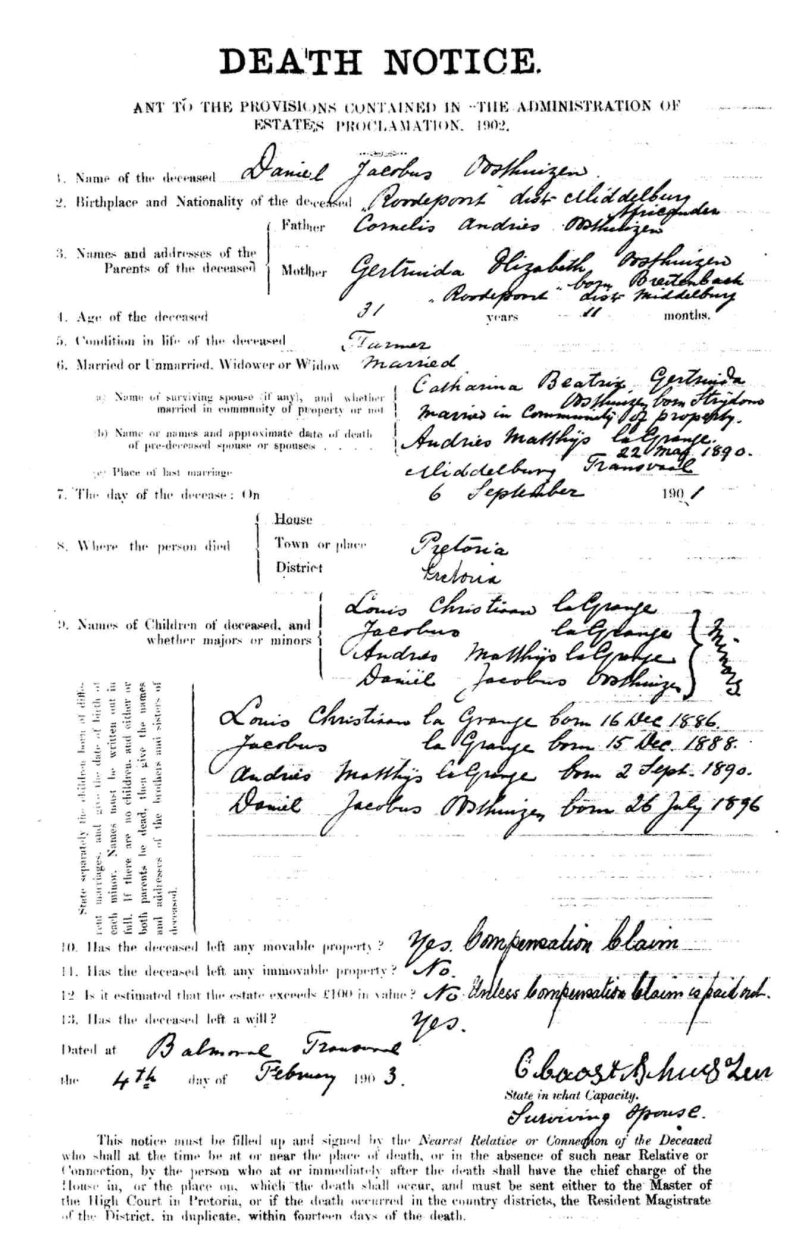 DEATH NOTICE.
ANT TO THE PROVISIONS CONTAINED IN THE ADMINISTRATION OF
ESTATES PROCLAMATION, 1902.
1. Name of the deceased Daniel Jacobus Oosthuizen
2. Birthplace and Nationality of the deceased "Roodepoort" distr Middelburg
Africander
3. Names and addresses of the Parents of the deceased
Father Cornelis Andries Oosthuizen
Mother Gertruida Elizabeth Oosthuizen
born Breitenbach
"Roodepoort" distr Middelburg
4. Age of the deceased 31 years 11 months.
5. Condition in life of the deceased Farmer
6. Married or Unmarried, Widower or Widow Married
a) Name of surviving spouse (if any), and whether married in community of property or not
Catharina Beatrix Gertruida
Oosthuizen born Strydom
Married in Community of property.
(b) Name or names and approximate date of death of pre-deceased spouse or spouses . . . .
Andries Matthijs la Grange.
22 May 1890.
(c) Place of last marriage Middelburg Transvaal
7. The day of the decease: On 6 September 1901
8. Where the person died
House
Town or place Pretoria
District Pretoria
9. Names of Children of deceased, and whether majors or minors
Louis Christiaan la Grange
Jacobus la Grange
Andries Matthijs la Grange
Daniël Jacobus Oosthuizen
Minors
State separately the children born of diffe-
rent marriages, and give the date of birth of
each minor. Names must be written out in
full. If there are no children, and either or
both parents be dead, then give the names
and addresses of the brothers and sisters of
deceased.
Louis Christiaan la Grange born 16 Dec 1886.
Jacobus la Grange born 15 Dec. 1888.
Andries Matthijs la Grange born 2 Sept. 1890.
Daniel Jacobus Oosthuizen born 26 July 1896
10. Has the deceased left any movable property? Yes. Compensation Claim
11. Has the deceased left any immovable property? No.
12 Is it estimated that the estate exceeds £100 in value? No Unless Compensation Claim is paid out.
13. Has the deceased left a will? Yes.
Dated at Balmoral Transvaal
the 4th day of February 1903.
State in what Capacity.
Surviving Spouse.
This notice must be filled up and signed by the Nearest Relative or Connection of the Deceased
who shall at the time be at or near the place of death, or in the absence of such near Relative or
Connection, by the person who at or immediately after the death shall have the chief charge of the
House in, or the place on, which the death shall occur, and must be sent either to the Master of
the High Court in Pretoria, or if the death occurred in the country districts, the Resident Magistrate
of the District, in duplicate, within fourteen days of the death.